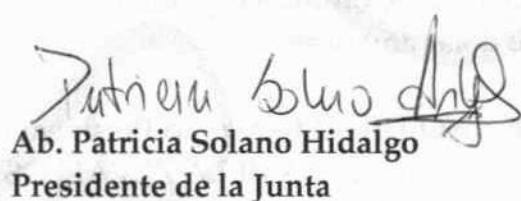 Patricia Solano Hidalgo
Ab. Patricia Solano Hidalgo
Presidente de la Junta